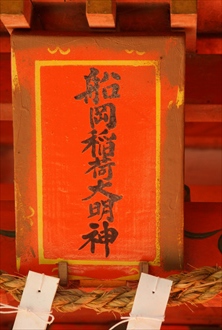 船岡稲荷大明神